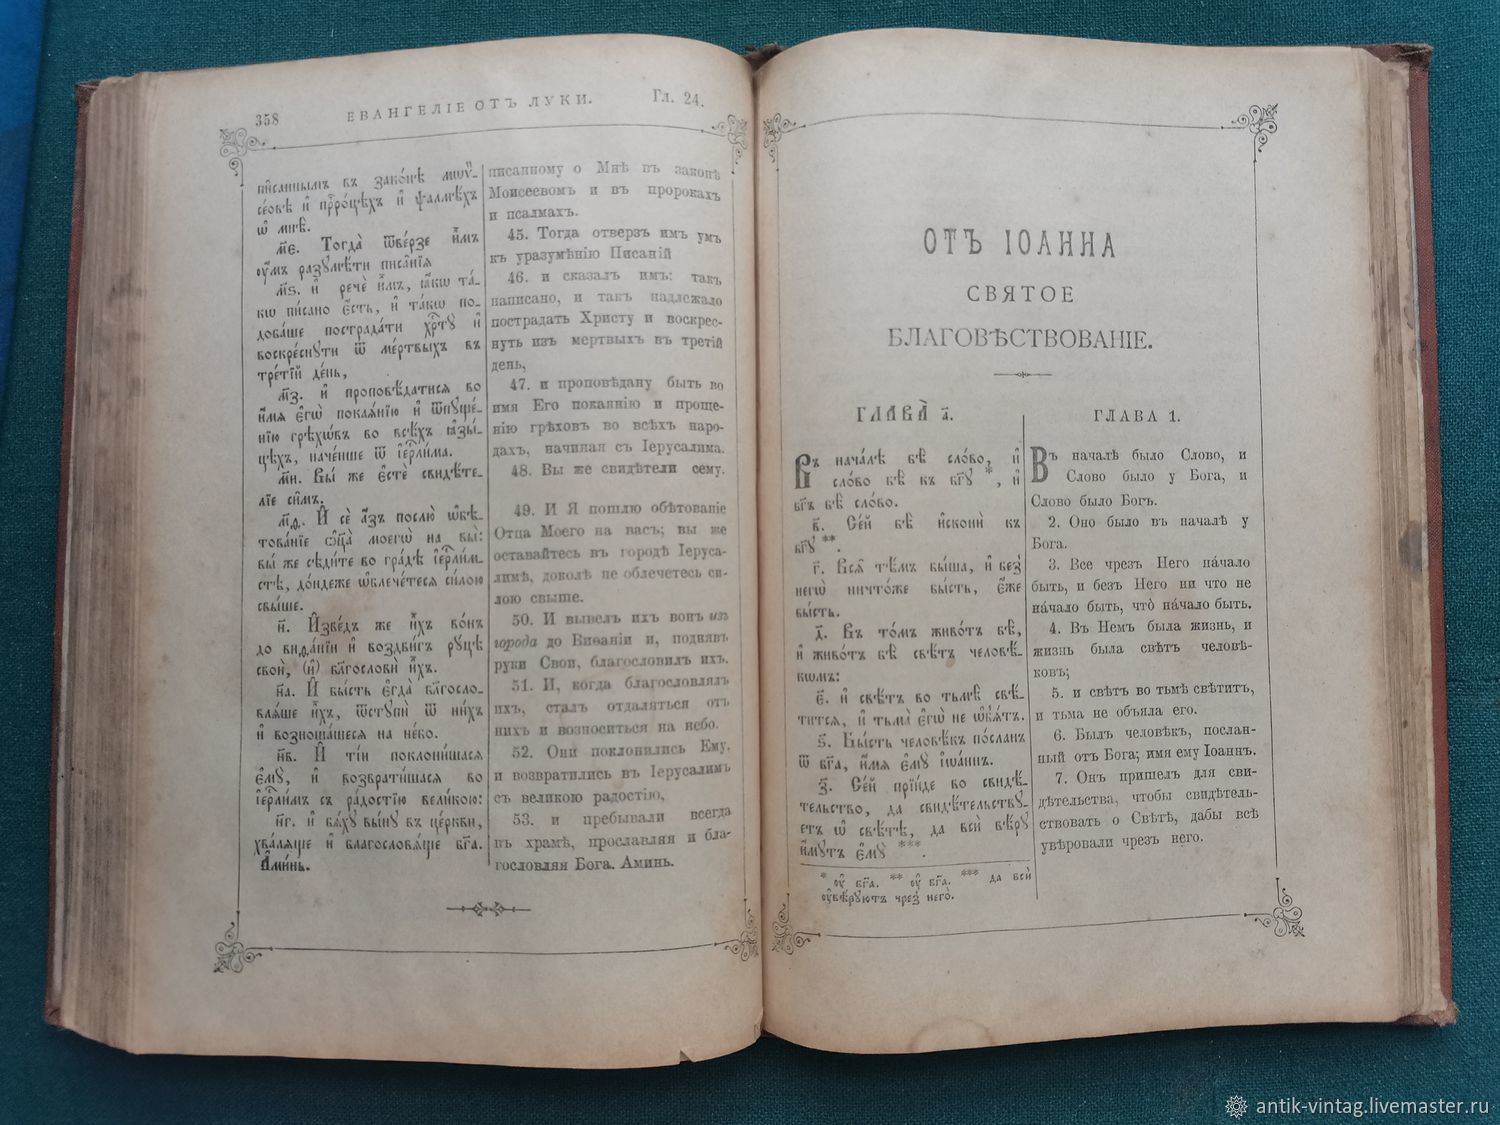 358
ЕВАНГЕЛІЕ ОТЪ ЛУКИ.
Гл. 24.
пи҃санными въ зако́нѣ мѡѷ-
се́овѣ и҆ прⷪ҇ро́цѣхъ и҆ ѱалмѣ́хъ
ѡ҆ мнѣ̀.
м҃е. Тогда̀ ѿве́рзе и҆̀мъ
ᲂу҆́мъ разꙋмѣ́ти писа̑нїѧ
м҃ѕ. и҆ речѐ и҆̀мъ, ꙗ҆́кѡ та́-
кѡ пи́сано є҆́сть, и҆ та́кѡ по-
доба́ше пострада́ти хрⷭ҇тꙋ̀ и҆
воскре́снꙋти ѿ ме́ртвыхъ въ
тре́тїй де́нь,
м҃з. и҆ проповѣ́датисѧ во
и҆́мѧ є҆гѡ̀ покаѧ́нїю и҆ ѿпꙋще́-
нїю грѣхѡ́въ во всѣ́хъ ꙗ҆зы́-
цѣхъ, наче́нше ѿ і҆ерⷭ҇ли́ма.
м҃и. Вы́ же є҆стѐ свидѣ́те-
лїе си̑мъ.
м҃ѳ. И҆ сѐ а҆́зъ послю̀ ѡ҆бѣ-
това́нїе ѻ҆ц҃а̀ моегѡ̀ на вы̀:
вы́ же сѣди́те во гра́дѣ і҆ерⷭ҇ли́м-
стѣ, до́ндеже ѡ҆блече́тесѧ си́лою
свы́ше.
н҃. И҆зве́дъ же и҆̀хъ во́нъ
до виѳа́нїи и҆ воздви́гъ рꙋ́цѣ
своѝ, (и҆) бл҃гословѝ и҆̀хъ.
н҃а. И҆ бы́сть є҆гда̀ бл҃госло-
влѧ́ше и҆̀хъ, ѿстꙋпѝ ѿ ни́хъ
и҆ возноша́шесѧ на не́бо.
н҃в. И҆ ті́и поклони́шасѧ
є҆мꙋ̀, и҆ возврати́шасѧ во
і҆ерⷭ҇ли́мъ съ ра́достїю вели́кою:
н҃г. и҆ бѧ́хꙋ вы́нꙋ въ це́ркви,
хва́лѧще и҆ благословѧ́ще бг҃а.
А҆ми́нь.
писанному о Мнѣ въ законѣ
Моисеевомъ и въ пророкахъ
и псалмахъ.
45. Тогда отверзъ имъ умъ
къ уразумѣнію Писаній
46. и сказалъ имъ: такъ
написано, и такъ надлежало
пострадать Христу и воскрес-
нуть изъ мертвыхъ въ третій
день,
47. и проповѣдану быть во
имя Его покаянію и проще-
нію грѣховъ во всѣхъ наро-
дахъ, начиная съ Іерусалима.
48. Вы же свидѣтели сему.
49. И Я пошлю обѣтованіе
Отца Моего на васъ; вы же
оставайтесь въ городѣ Іеруса-
лимѣ, доколѣ не облечетесь си-
лою свыше.
50. И вывелъ ихъ вонъ изъ
города до Виѳаніи и, поднявъ
руки Свои, благословилъ ихъ.
51. И, когда благословлялъ
ихъ, сталъ отдаляться отъ
нихъ и возноситься на небо.
52. Они поклонились Ему,
и возвратились въ Іерусалимъ
съ великою радостію,
53. и пребывали всегда
въ храмѣ, прославляя и бла-
гословляя Бога. Аминь.
ОТЪ ІОАННА
СВЯТОЕ
БЛАГОВѢСТВОВАНІЕ.
ГЛАВА̀ а҃.
Въ нача́лѣ бѣ̀ сло́во, и҆
сло́во бѣ̀ къ бг҃ꙋ *, и҆
бг҃ъ бѣ̀ сло́во.
в҃. Се́й бѣ̀ и҆сконѝ къ
бг҃ꙋ **.
г҃. Всѧ̑ тѣ́мъ бы́ша, и҆ без̾
негѡ̀ ничто́же бы́сть, є҆́же
бы́сть.
д҃. Въ то́мъ живо́тъ бѣ̀,
и҆ живо́тъ бѣ̀ свѣ́тъ человѣ́-
кѡмъ:
є҃. и҆ свѣ́тъ во тьмѣ̀ свѣ́-
титсѧ, и҆ тьма̀ є҆гѡ̀ не ѡ҆б̾ѧ́тъ.
ѕ҃. Бы́сть человѣ́къ по́сланъ
ѿ бг҃а, и҆́мѧ є҆мꙋ̀ і҆ѡа́ннъ.
з҃. Се́й прїи́де во свидѣ́-
тельство, да свидѣ́тельствꙋ-
етъ ѡ҆ свѣ́тѣ, да всѝ вѣ́рꙋ
и҆́мꙋтъ є҆мꙋ̀ ***.
* ᲂу҆ бг҃а. ** ᲂу҆ бг҃а. *** да всѝ
ᲂу҆вѣ́рꙋютъ чрез̾ него̀.
ГЛАВА 1.
Въ началѣ было Слово, и
Слово было у Бога, и
Слово было Богъ.
2. Оно было въ началѣ у
Бога.
3. Все чрезъ Него на́чало
быть, и безъ Него ни что не
на́чало быть, что̀ на́чало быть.
4. Въ Немъ была жизнь, и
жизнь была свѣтъ человѣ-
ковъ;
5. и свѣтъ во тьмѣ свѣтитъ,
и тьма не объяла его.
6. Былъ человѣкъ, послан-
ный отъ Бога; имя ему Іоаннъ.
7. Онъ пришелъ для сви-
дѣтельства, чтобы свидѣтель-
ствовать о Свѣтѣ, дабы всѣ
увѣровали чрезъ него.
antik-vintag.livemaster.ru